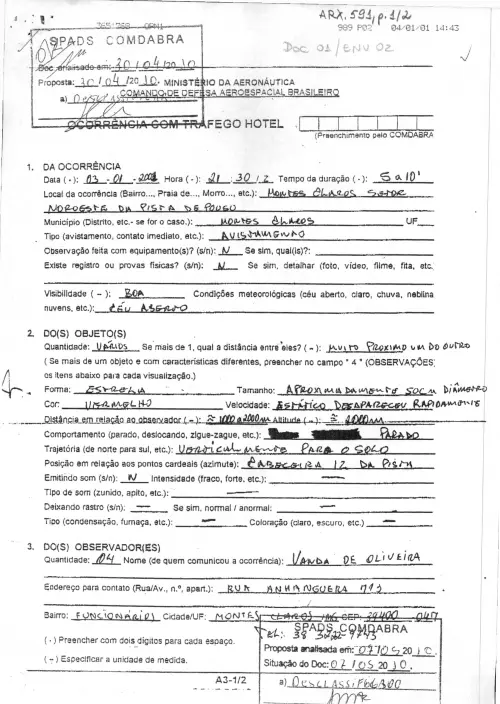 ARX. 591, p. 1/2
989 P02 04/01/01 14:43
SPADS COMDABRA
Doc 01 / ENV 02
Doc. analisado em: 30/04/2010
Proposta: 30/04/2010. MINISTÉRIO DA AERONÁUTICA
a) COMANDO DE DEFESA AEROESPACIAL BRASILEIRO
OCORRÊNCIA COM TRÁFEGO HOTEL
(Preenchimento pelo COMDABRA
1. DA OCORRÊNCIA
Data (·): 03-01-2001 Hora (·): 21:30 / Z Tempo da duração (·): 5 a 10'
Local da ocorrência (Bairro..., Praia de..., Morro..., etc.): MONTES CLAROS SETOR
NOROESTE DA PISTA DE POUSO
Município (Distrito, etc.- se for o caso.): MONTES CLAROS UF
Tipo (avistamento, contato imediato, etc.): AVISTAMENTO
Observação feita com equipamento(s)? (s/n): N Se sim, qual(is)?:
Existe registro ou provas físicas? (s/n): N Se sim, detalhar (foto, vídeo, filme, fita, etc.
Visibilidade ( ~ ): BOA Condições meteorológicas (céu aberto, claro, chuva, neblina
nuvens, etc.): CÉU ABERTO
2. DO(S) OBJETO(S)
Quantidade: VÁRIOS Se mais de 1, qual a distância entre eles? ( ~ ): MUITO PROXIMO UM DO OUTRO
( Se mais de um objeto e com características diferentes, preencher no campo "4" (OBSERVAÇÕES)
os itens abaixo para cada visualização.)
Forma: ESTRELA Tamanho: APROXIMADAMENTE 50CM DIÂMETRO
Cor: VERMELHO Velocidade: ESTÁTICO DESAPARECEU RAPIDAMENTE
Distância em relação ao observador ( ~ ): ≅ 1000 a 2000m Altitude ( ~ ): ≅ 2000m
Comportamento (parado, deslocando, zigue-zague, etc.): PARADO
Trajetória (de norte para sul, etc.): VERTICALMENTE PARA O SOLO
Posição em relação aos pontos cardeais (azimute): CABECEIRA 12 DA PISTA
Emitindo som (s/n): N Intensidade (fraco, forte, etc.): —
Tipo de som (zunido, apito, etc.): —
Deixando rastro (s/n): — Se sim, normal / anormal: —
Tipo (condensação, fumaça, etc.): — Coloração (claro, escuro, etc.) —
3. DO(S) OBSERVADOR(ES)
Quantidade: 04 Nome (de quem comunicou a ocorrência): VANDA DE OLIVEIRA
Endereço para contato (Rua/Av., n.º, apart.): RUA ANHANGUERA 713
Bairro: FUNCIONÁRIOS Cidade/UF: MONTES CLAROS /MG CEP: 39400 047
(·) Preencher com dois dígitos para cada espaço.
SPADS COMDABRA
Proposta analisada em: 07/05 2010.
( ~ ) Especificar a unidade de medida.
Situação do Doc: 07/05 2010.
A3-1/2
a) DESCLASSIFICADO